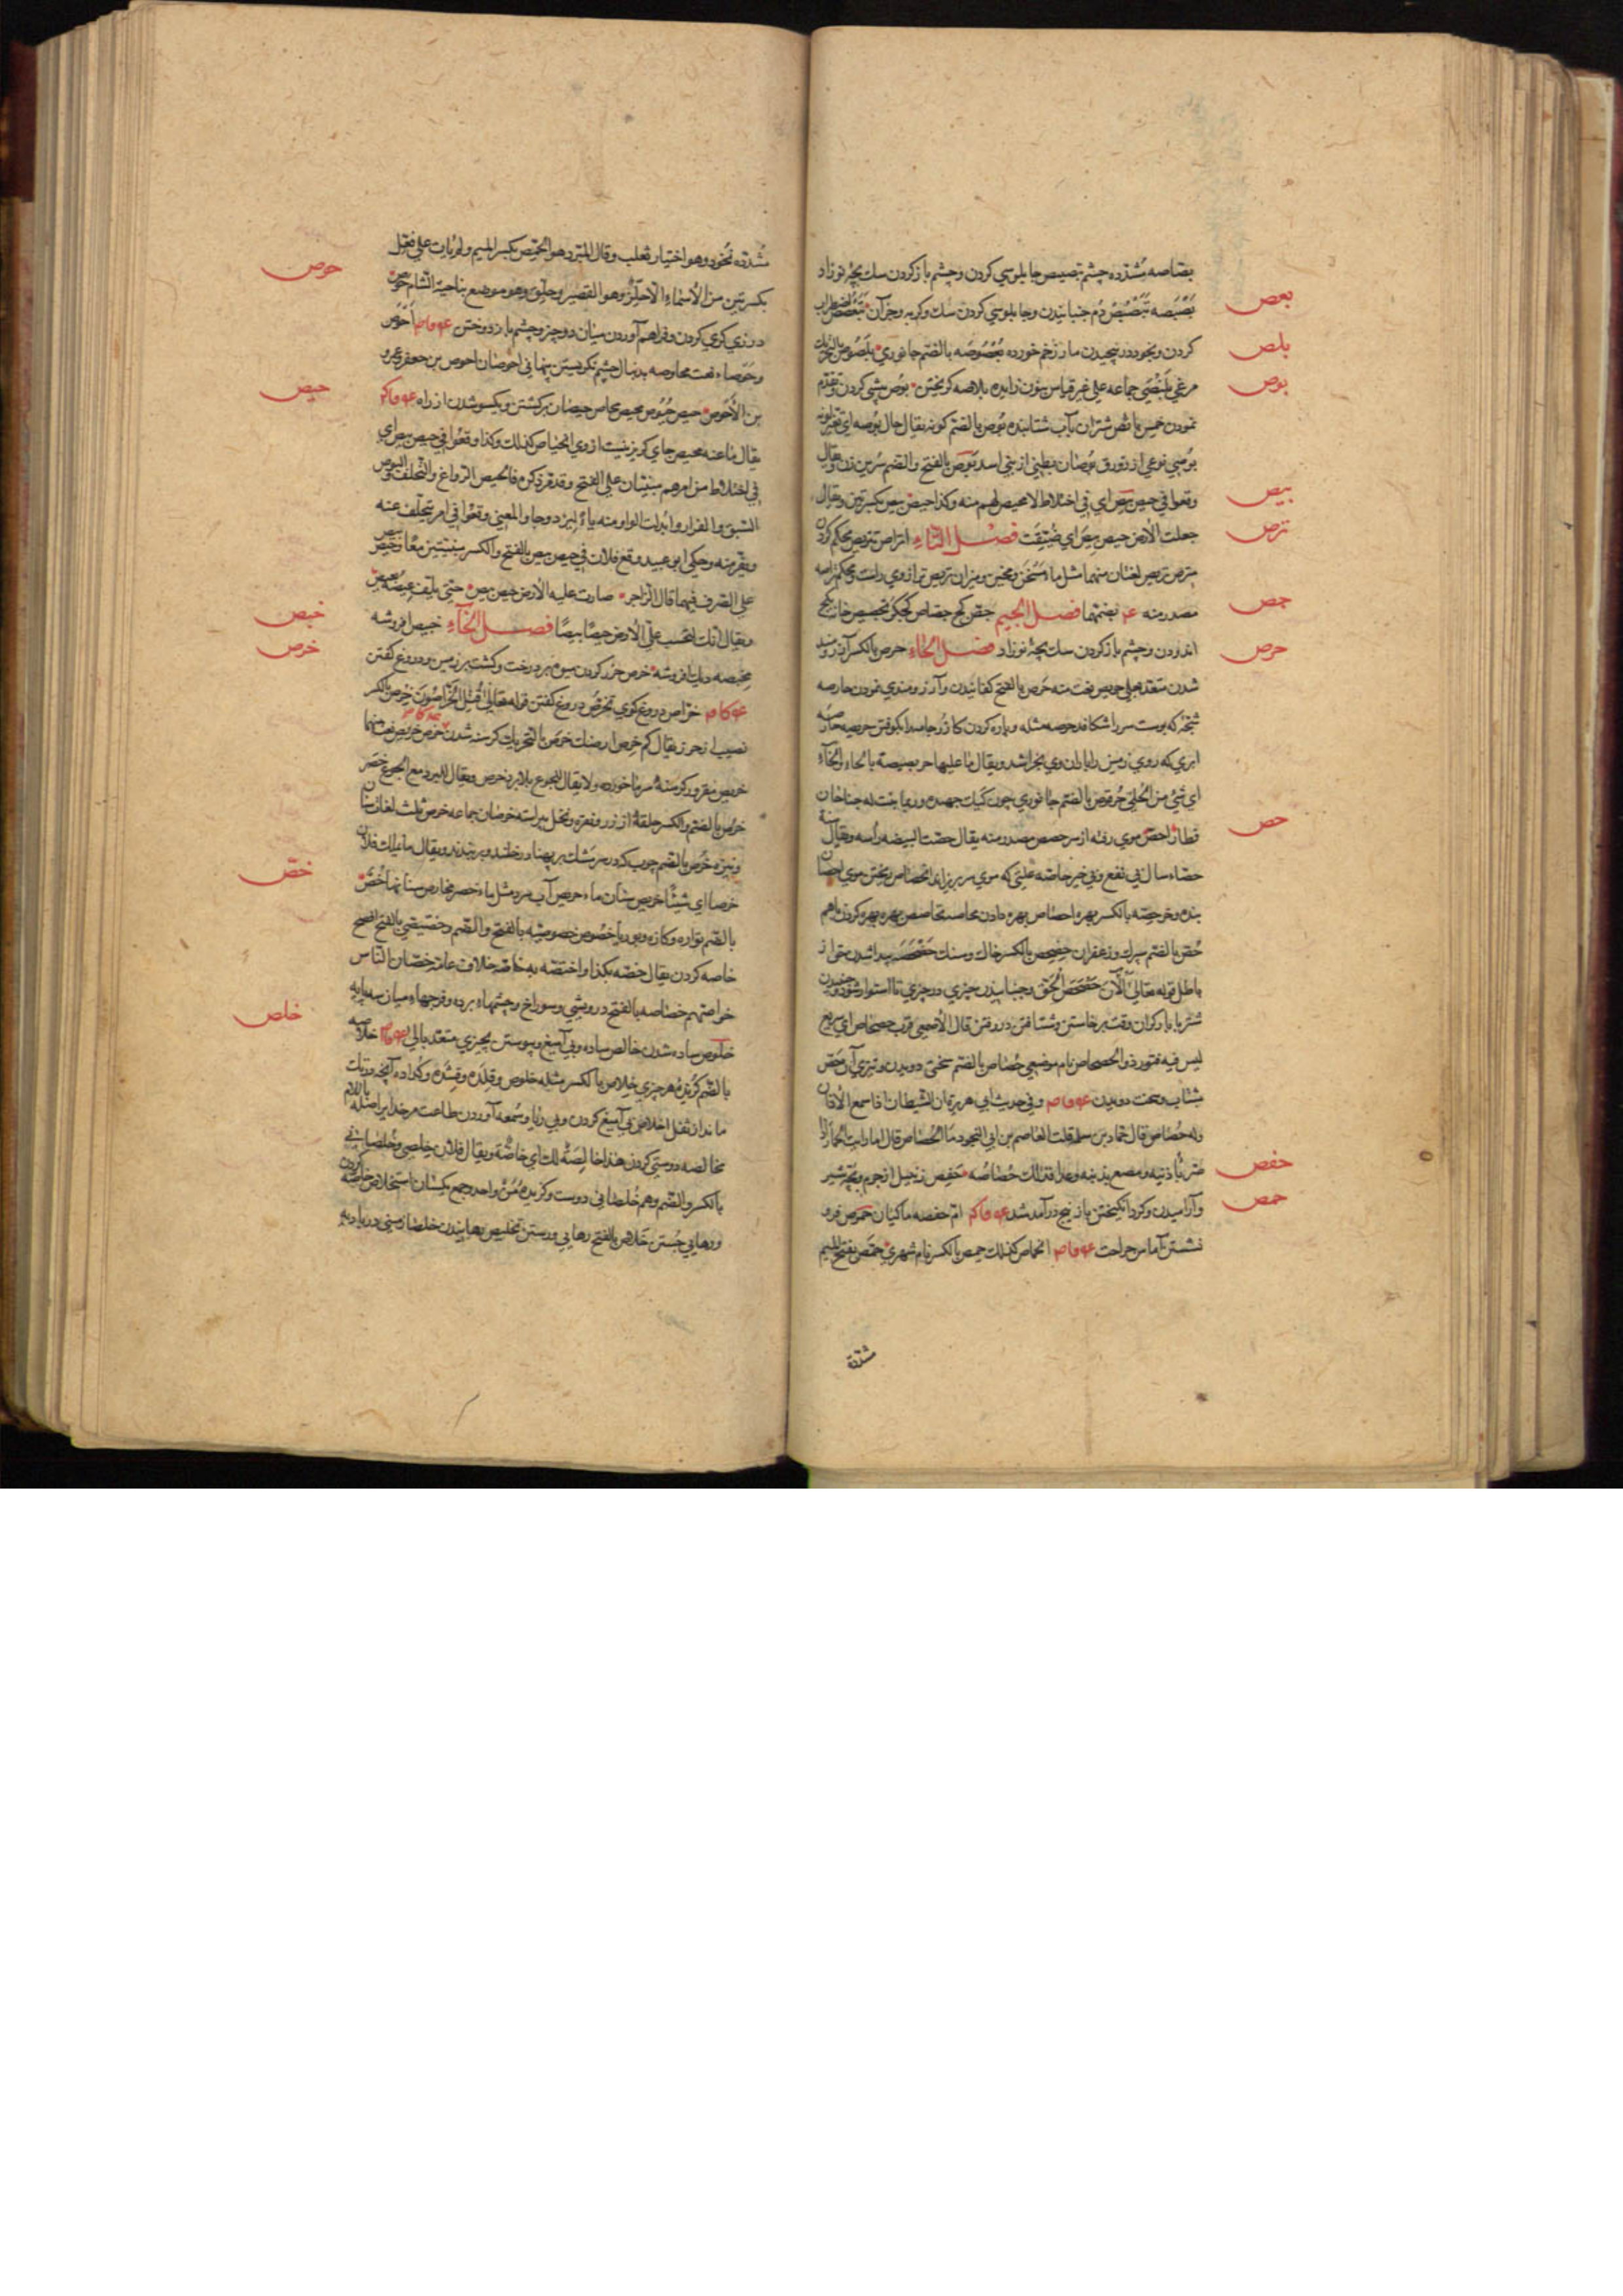 بصاصه مشدّده چشم تبصیص چابلوسی کردن و چشم باز کردن سك بچهٔ نوزاد
بعص
بَصْبَصَه تَبَصْبُصْ دُم جنبانیدن و چابلوسی کردن سك و کربه و جز آن تَبَعْصُص اضطراب
بلص
کردن و بخود در پیچیدن مار زخم خورده بُعْصُوصَه بالضم جانوری بَلَصُوص بالتحریك
بوص
مرغی بَلَنْصَی جماعه علی غیر قیاس بنون زایده بلاصه کریختن بوص پیشی کردن و تقدّم
نمودن خمس بائص شتران بآب شتابنده بُوص بالضم کونه یقال حال بُوصه ای تغیّر لونه
بُوصی نوعی از زورق بُوصان بطنی از بنی اسد بَوص بالفتح والضم سُرین زن و یقال
بیص
وقعوا فی حیص بیص ای فی اختلاط لا محیص لهم منه وکذا حیص بیص بکسرتین و یقال
ترص
جعلت الارض حیص بیص ای ضیّقت فصل التاء اتراص تتریص محکم کردن
مترص تریص لغتان منهما مثل ماء مسخن و سخین و میزان تریص ترازوی راست و محکم تراصه
جص
مصدر منه ع بضمتهما فصل الجیم جصّ کچ جصّاص کچکر تجصیص خانه بکچ
حرص
اندودن و چشم باز کردن سك بچهٔ نوزاد فصل الحاء حرص بالکسر آرزومند
شدن متعد بعلی حریص نعت منه حَرص بالفتح کفانیدن و آرزومندی نمودن حارصه
شجّهٔ که پوست سر را شکافد حرصه مثله و پاره کردن کازر جامه را بکوفتن حریصه حارصه
ابری که روی زمین را باران وی بخراشد و یقال ما علیها حربصیصة بالحاء والخاء
ای شئ من الحلی حُرقوص بالضم جانوری چون کیك جهنده و ربما نبت له جناحان
حص
فطار احصّ موی رفته از سر حصص مصدر منه یقال حصّت البیضه رأسه و یقال سنة
حصّاء سال بی نفع و بی خیر حاصّه علّتی که موی سر بریزاند انحصاص ریختن موی احصان
بنده و خر حصّه بالکسر بهره احصاص بهره دادن محاصه تحاصص بهره بهره کردن باهم
حُصّ بالضم سپرك و زعفران حِصحِص بالکسر خاك و سنك حَصْحَصَه پیدا شدن حق از
باطل قوله تعالی الآن حَصْحَصَ الحَق و جنبانیدن چیزی در چیزی تا استوار شود و جنبیدن
شتر با بار کران وقت برخاستن و شتافتن در رفتن قال الاصمعی قرب حصحاص ای سریع
لیس فیه فتور ذو الحصحاص نام موضعی حُصاص بالضم سختی دویدن و تیزی آن حَصّ
بشتاب و سخت دویدن و فی حدیث ابی هریره ان الشیطان اذا سمع الاذان
وله حُصاص قال حمّاد بن سلمة قلت لعاصم بن ابی النجود ما الحُصاص قال اما رایت الحمار اذا
حفص
صَرّ باذنیه و مصع بذنبه و عدا فذلك حُصاصُه حَفص زنبیل از جرم و بچهٔ شیر
حمص
و آرامیدن و کرد انکیختن باز بیخ در آمد شد امّ حفصه ماکیان حموص فرو
نشستن آماس جراحت انحماص کذلك حمص بالکسر نام شهری حِمَّص بفتح المیم
مشدّدة
مُشدّده نخود وهو اختیار ثعلب و قال المبرد هو الحِمِّص بکسر المیم ولم یأت علی فِعِّل
حوص
بکسرتین من الاسماء الا حِلِّز وهو القصیر و جِلِّق وهو موضع بناحیة الشام حَوص
درزی کری کردن و فراهم آوردن میان دو چیز و چشم باز دوختن اَحوَص
و حَوصاء نعت محاوصه بدنبال چشم نکریستن پنهانی احوصان احوص بن جعفر و عمرو
حیص
بن الأَحوَص حیص حُیُوص محیص محاص حیصان برکشتن و یکسو شدن از راه
یقال ما عنه محیص جای کریز نیست از وی انحیاص کذلك وکذا وقعوا فی حیص بیص ای
فی اختلاط من امرهم مبنیّان علی الفتح و قد مرّ ذکره فالحیص الرواغ والتخلف والبوص
السَّبق والفرار وابدلت الواو منه یاءً لیزدوجا والمعنی وقعوا فی امر یتخلف عنه
و یفرّ منه و حکی ابو عبید وقع فلان فی حیص بیص بالفتح والکسر مبنیّتین معًا و حیص بیص
علی الصرف فیهما قال الراجز صارت علیه الارض حیص بیص حتی یلفّ عیصه بعیص
خبص
و یقال انك لتحسب علیّ الارض حیصًا بیصًا فصل الخاء خبیص افروشه
خرص
مِخبصه دیك افروشه خرص حزر کردن میوه بر درخت و کشت بر زمین و دروغ کفتن
خرّاص دروغ کوی تخرّص دروغ کفتن قوله تعالی قُتِلَ الخَرّاصُونَ خِرص بالکسر
نصیب از حرز یقال کم خِرص ارضك خرَص بالتحریك کرسنه شدن خرِص خریص نعت منهما
خریص مقرور کرسنه سرما خورده ولا یقال للجوع بلا برد خرص و یقال للبرد مع الجوع خصر
خرص بالضم والکسر حلقهٔ از زر و نقره و نخل بیراسته خرصان جماعه خرص ثلث لغات سنان
و نیزه خُرص بالضم چوب که در سر مشك بر پهنا در خلند و بر بندند و یقال ما یملك فلان
خرصا ای شیئًا خریص سنان ماء خریص آب سرد مثل ماء خصر مخارص سنانها خُصّ
خصّ
بالضم تواره و کازه و بوریا خصُوص خصوصیّه بالفتح والضم و خصّیصی بالفتح افصح
خاصه کردن یقال خصّه بکذا و اختصّه به خاصّه خلاف عامّه خِصّان الناس
خواصّهم خصاصه بالفتح درویشی و سوراخ و چشمهاء برده و فرجهاء میان سه پایه
خلص
خلوص ساده شدن خالص ساده و بی آمیغ و پیوستن بچیزی متعد بالی خلاصه
بالضم کزیدهٔ هر چیزی خِلاص بالکسر مثله خلوص و قِلدَه و قِشدَه و کُدادَه آنچه در تك
ماند از ثفل اخلاص بی آمیغ کردن و بی ریا و سُمعه آوردن طاعت مر خدایرا صله باللام
مخالصه دوستی کردن هذا خالِصَةٌ لك ای خاصّة و یقال فلان خِلصی و خُلصانی
بالکسر والضم وهم خُلصانی دوست و کزیدهٔ مَن واحد و جمع یکسان استخلاص خاصّه کردن
و رهایی جُستن خَلاص بالفتح رهایی و رستن تخلیص رهانیدن خلصاء زمینی در بادیه